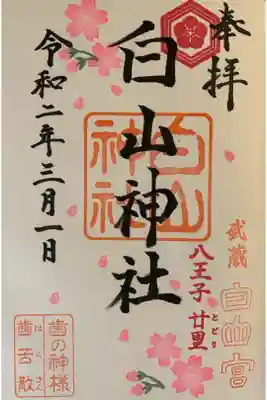 奉拝
白山神社
白山
神社
武蔵
白山宮
八王子 廿里
とどり
令和二年三月一日
歯の神様
歯苦散
はくさん